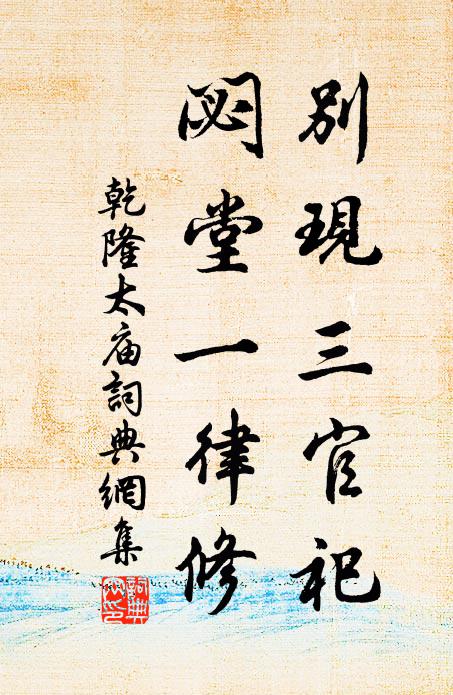 別現三官祀
閟堂一律修
乾隆太庙詞典網集